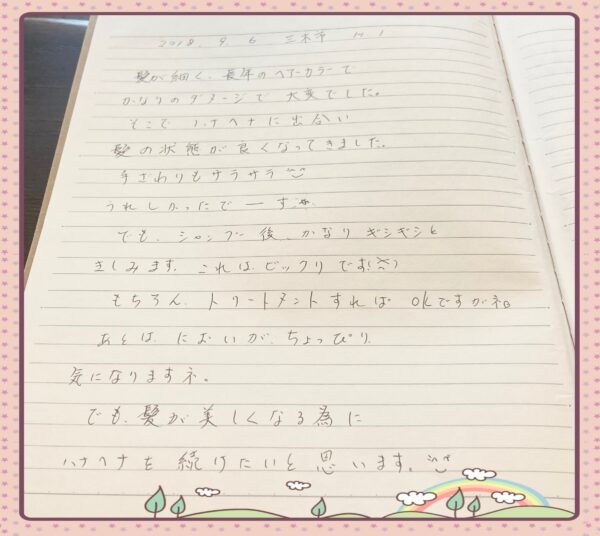 2018. 9. 6 三木市 M.I
髪が細く、長年のヘアーカラーで
かなりのダメージで 大変でした。
そこで ハナヘナに出会い
髪の状態が良くなってきました。
手ざわりもサラサラ
うれしかったでーす。
でも、シャンプー後、かなりギシギシと
きしみます。これは、ビックリです!
もちろん、トリートメントすれば OKですがネ。
あとは、においが、ちょっぴり、
気になりますネ。
でも、髪が美しくなる為に
ハナヘナを続けたいと思います。